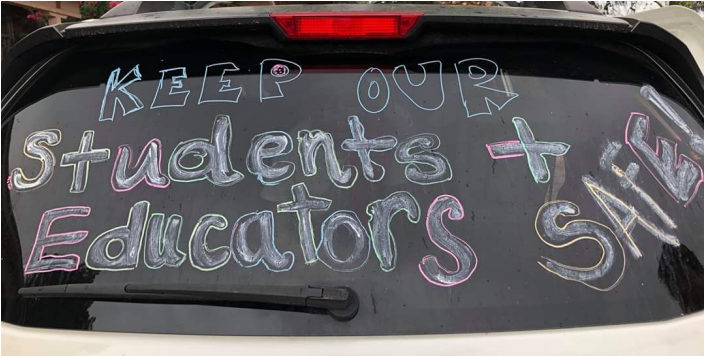 KEEP OUR
Students +
Educators SAFE!